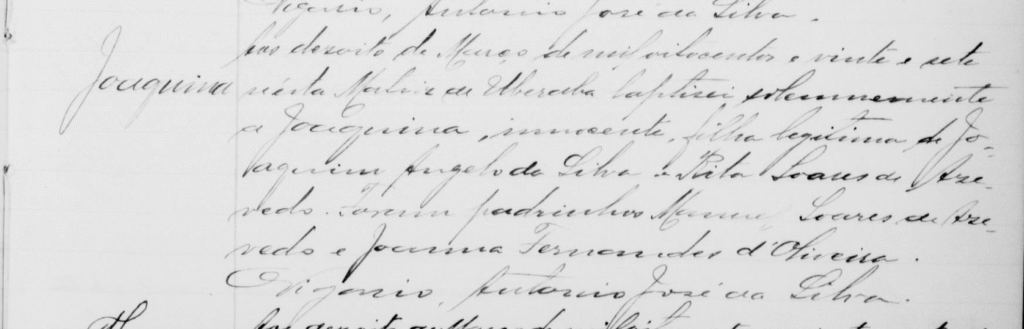 Vigario, Antonio José da Silva.
Aos desoito de Março de mil oitocentos e vinte e sete
Joaquina
nésta Matriz de Uberaba baptisei solemnemente
a Joaquina, innocente, filha legitima de Jo-
aquim Angelo da Silva e Rita Soares de Aze-
vedo. Foram padrinhos Manuel Soares de Aze-
vedo e Joanna Fernandes d'Oliveira.
Vigario, Antonio José da Silva.
Aos desoito de Março de mil